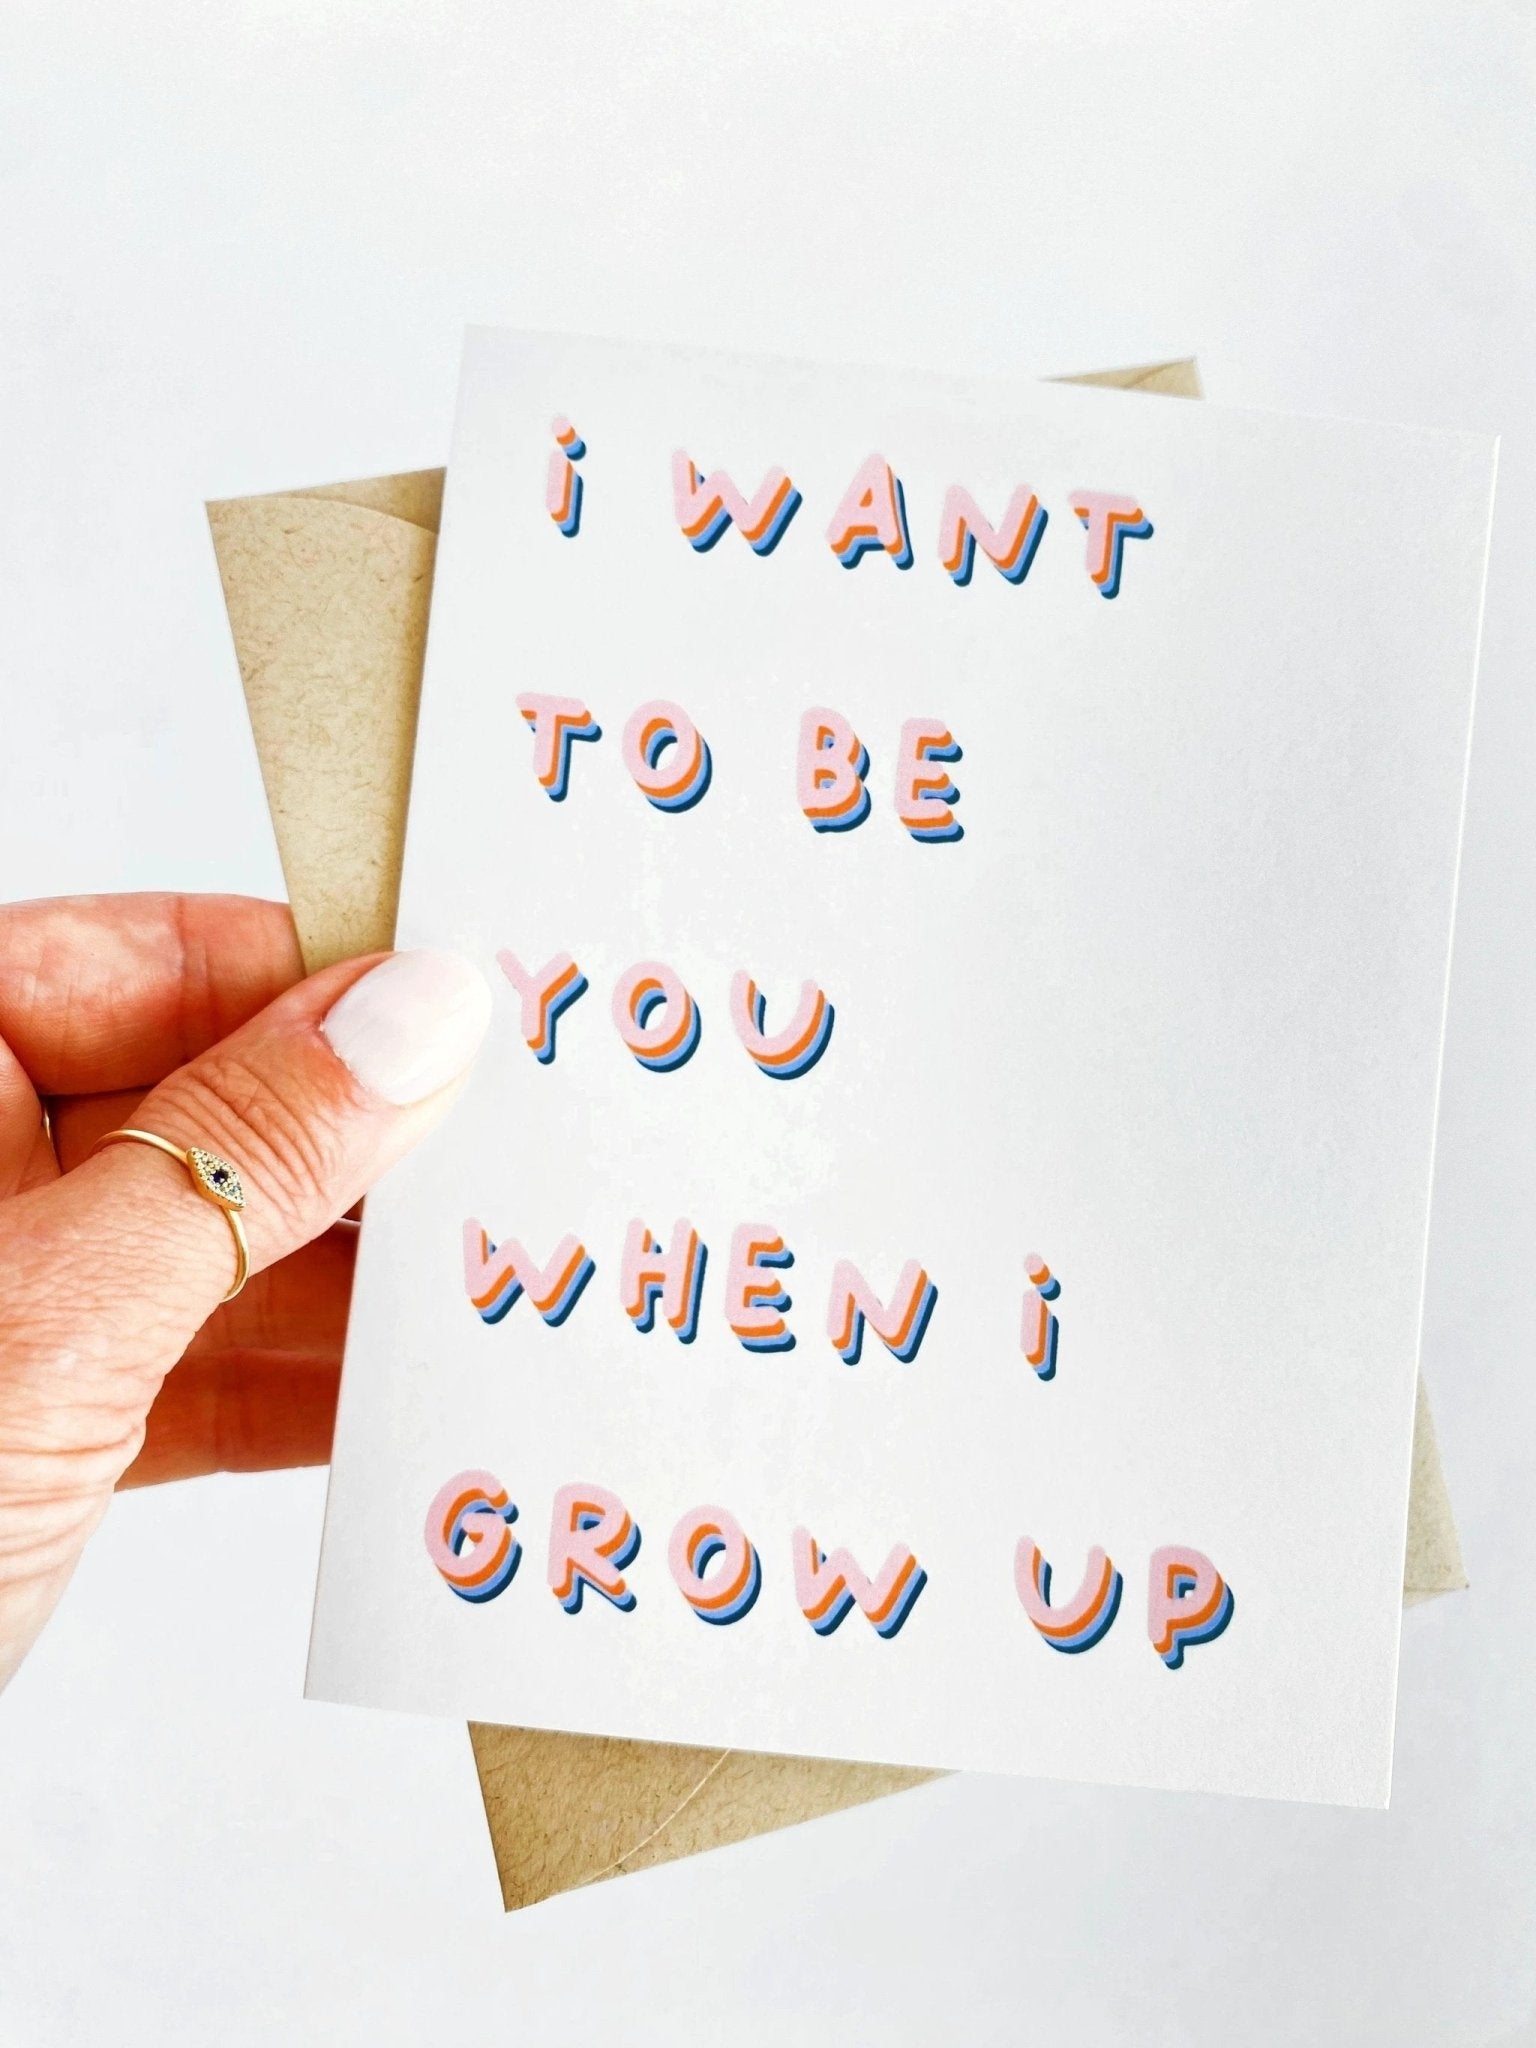 i WANT
TO BE
YOU
WHEN i
GROW UP